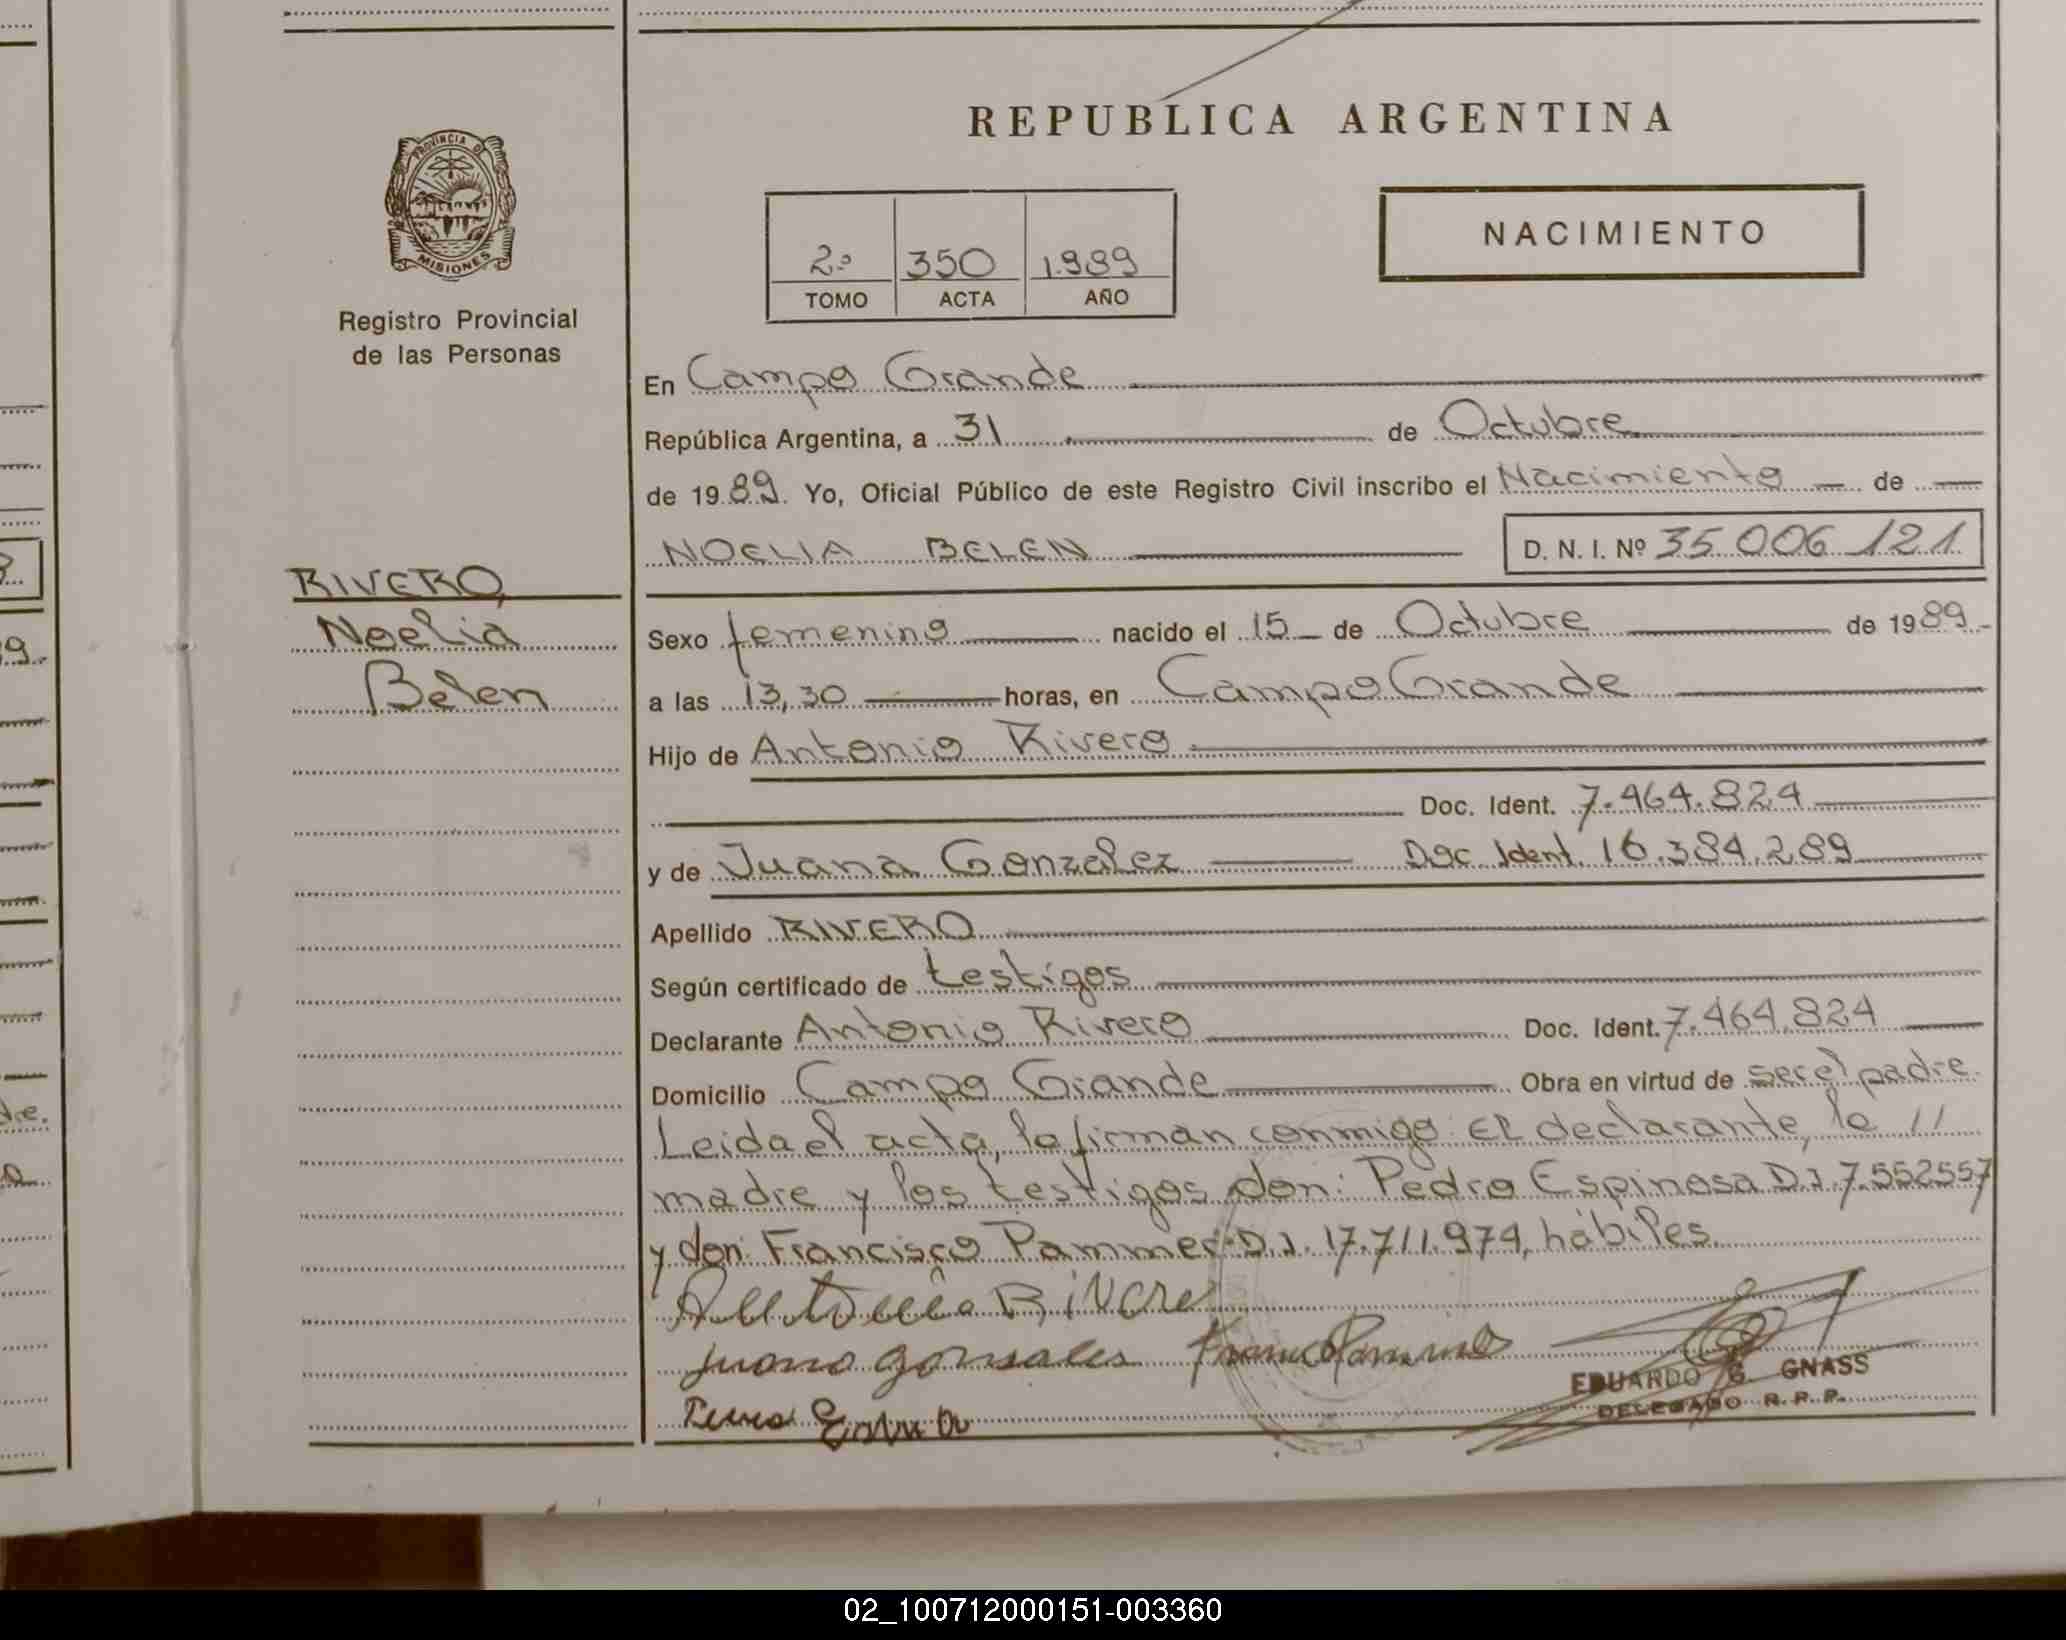 REPUBLICA ARGENTINA
PROVINCIA DE
MISIONES
Registro Provincial
de las Personas
2º 350 1.989
TOMO ACTA AÑO
NACIMIENTO
En Campo Grande
República Argentina, a 31 de Octubre
de 1989. Yo, Oficial Público de este Registro Civil inscribo el Nacimiento de
NOELIA BELEN D. N. I. Nº 35.006.121
RIVERO,
Noelia
Belen
Sexo femenino nacido el 15 de Octubre de 1989.
a las 13,30 horas, en Campo Grande
Hijo de Antonio Rivero
Doc. Ident. 7.464.824
y de Juana Gonzalez Doc. Ident. 16.384.289
Apellido RIVERO
Según certificado de testigos
Declarante Antonio Rivero Doc. Ident. 7.464.824
Domicilio Campo Grande Obra en virtud de ser el padre.
Leida el acta, la firman conmigo: El declarante, la //
madre y los testigos don: Pedro Espinosa D.I. 7.552557
y don: Francisco Pammer D.I. 17.711.974, hábiles.
juana gonsales
EDUARDO G. GNASS
DELEGADO R. P. P.
02_100712000151-003360